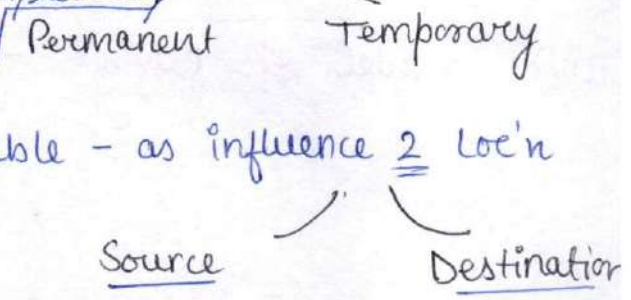 Permanent Temporary
ble - as influence 2 Loc'n
Source Destination